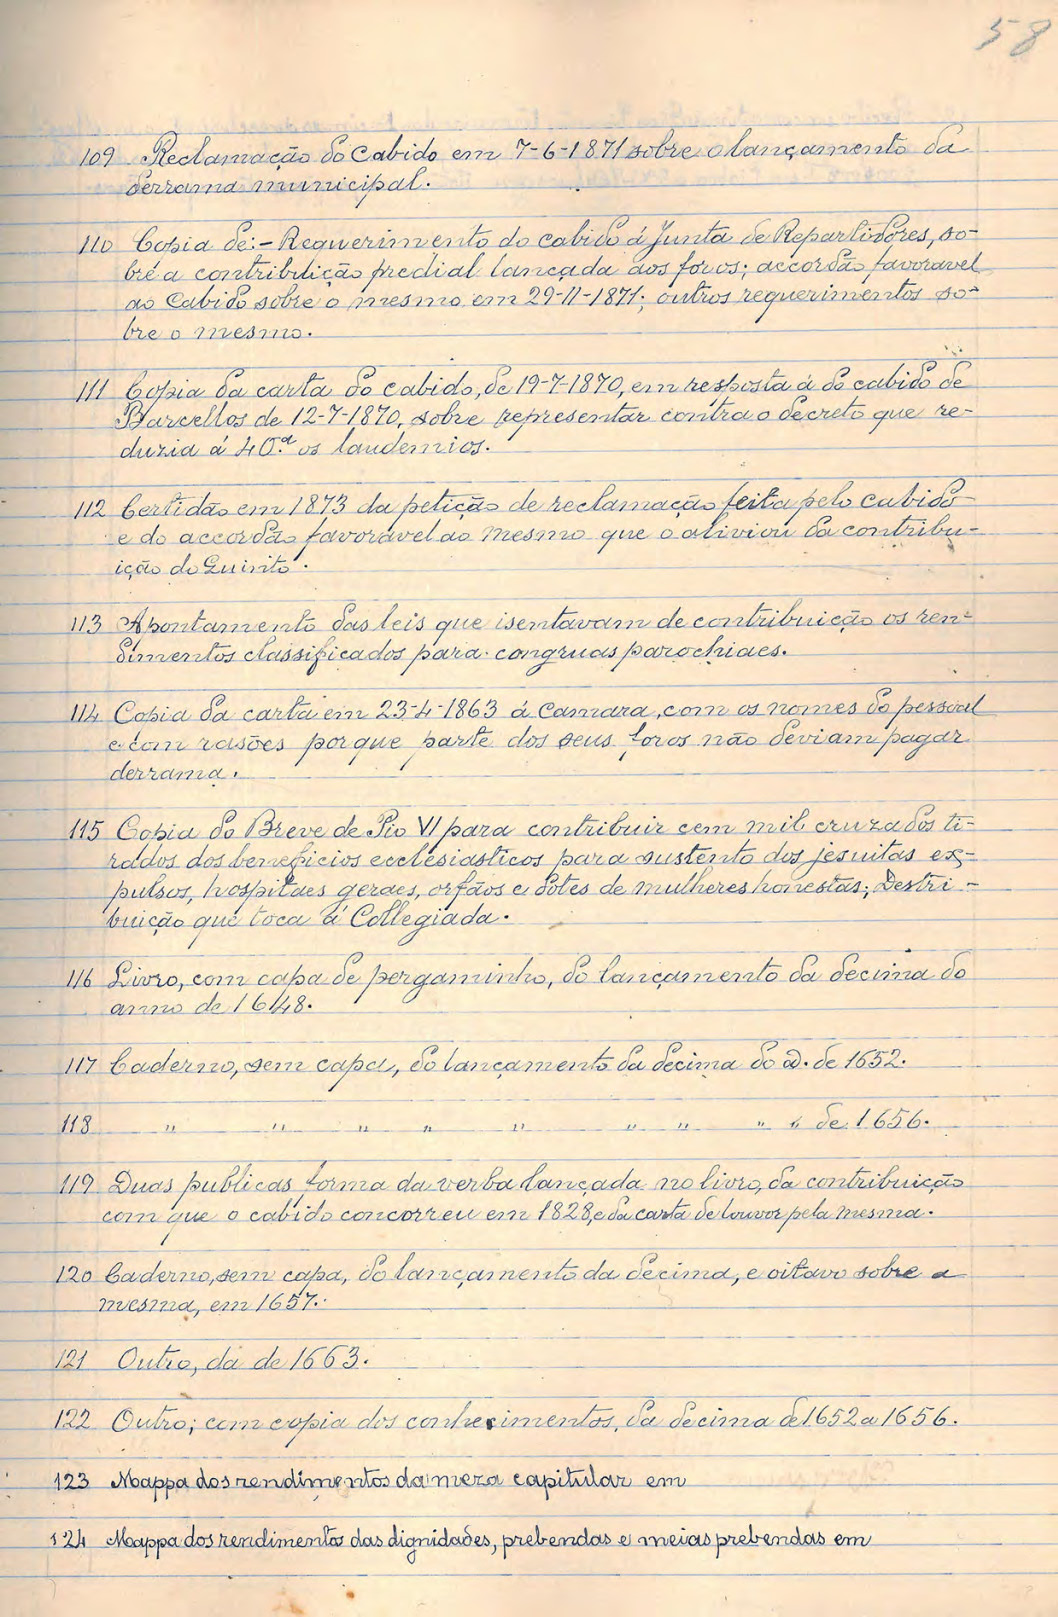 58
109 Reclamação do Cabido em 7-6-1871 sobre o lançamento da
derrama municipal.
110 Copia de:- Requerimento do cabido á Junta de Repartidores, so-
bre a contribuição predial lançada aos foros; accordão favoravel
ao Cabido sobre o mesmo em 29-11-1871; outros requerimentos so-
bre o mesmo.
111 Copia da carta do cabido, de 19-7-1870, em resposta á do cabido de
Barcellos de 12-7-1870, sobre representar contra o decreto que re-
duzia á 40.ª os laudemios.
112 Certidão em 1873 da petição de reclamação feita pelo cabido
e do accordão favoravel ao mesmo que o aliviou da contribu-
ição do Quinto.
113 Apontamento das leis que isentavam de contribuição os ren-
dimentos classificados para congruas parochiaes.
114 Copia da carta em 23-4-1863 á Camara, com os nomes do pessoal
e com rasões porque parte dos seus foros não deviam pagar
derrama.
115 Copia do Breve de Pio VI para contribuir cem mil cruzados ti-
rados dos beneficios ecclesiasticos para sustento dos jesuitas ex-
pulsos, hospitaes geraes, orfãos e dotes de mulheres honestas; Destri-
buição que toca á Collegiada.
116 Livro, com capa de pergaminho, do lançamento da decima do
anno de 1648.
117 Caderno, sem capa, do lançamento da decima do a. de 1652.
118 " " " " " " " " " de 1656.
119 Duas publicas forma da verba lançada no livro, da contribuição
com que o cabido concorreu em 1828, e da carta de louvor pela mesma.
120 Caderno, sem capa, do lançamento da decima, e oitavo sobre a
mesma, em 1657.
121 Outro, da de 1663.
122 Outro; com copia dos conhecimentos, da decima de 1652 a 1656.
123 Mappa dos rendimentos da meza capitular em
124 Mappa dos rendimentos das dignidades, prebendas e meias prebendas em